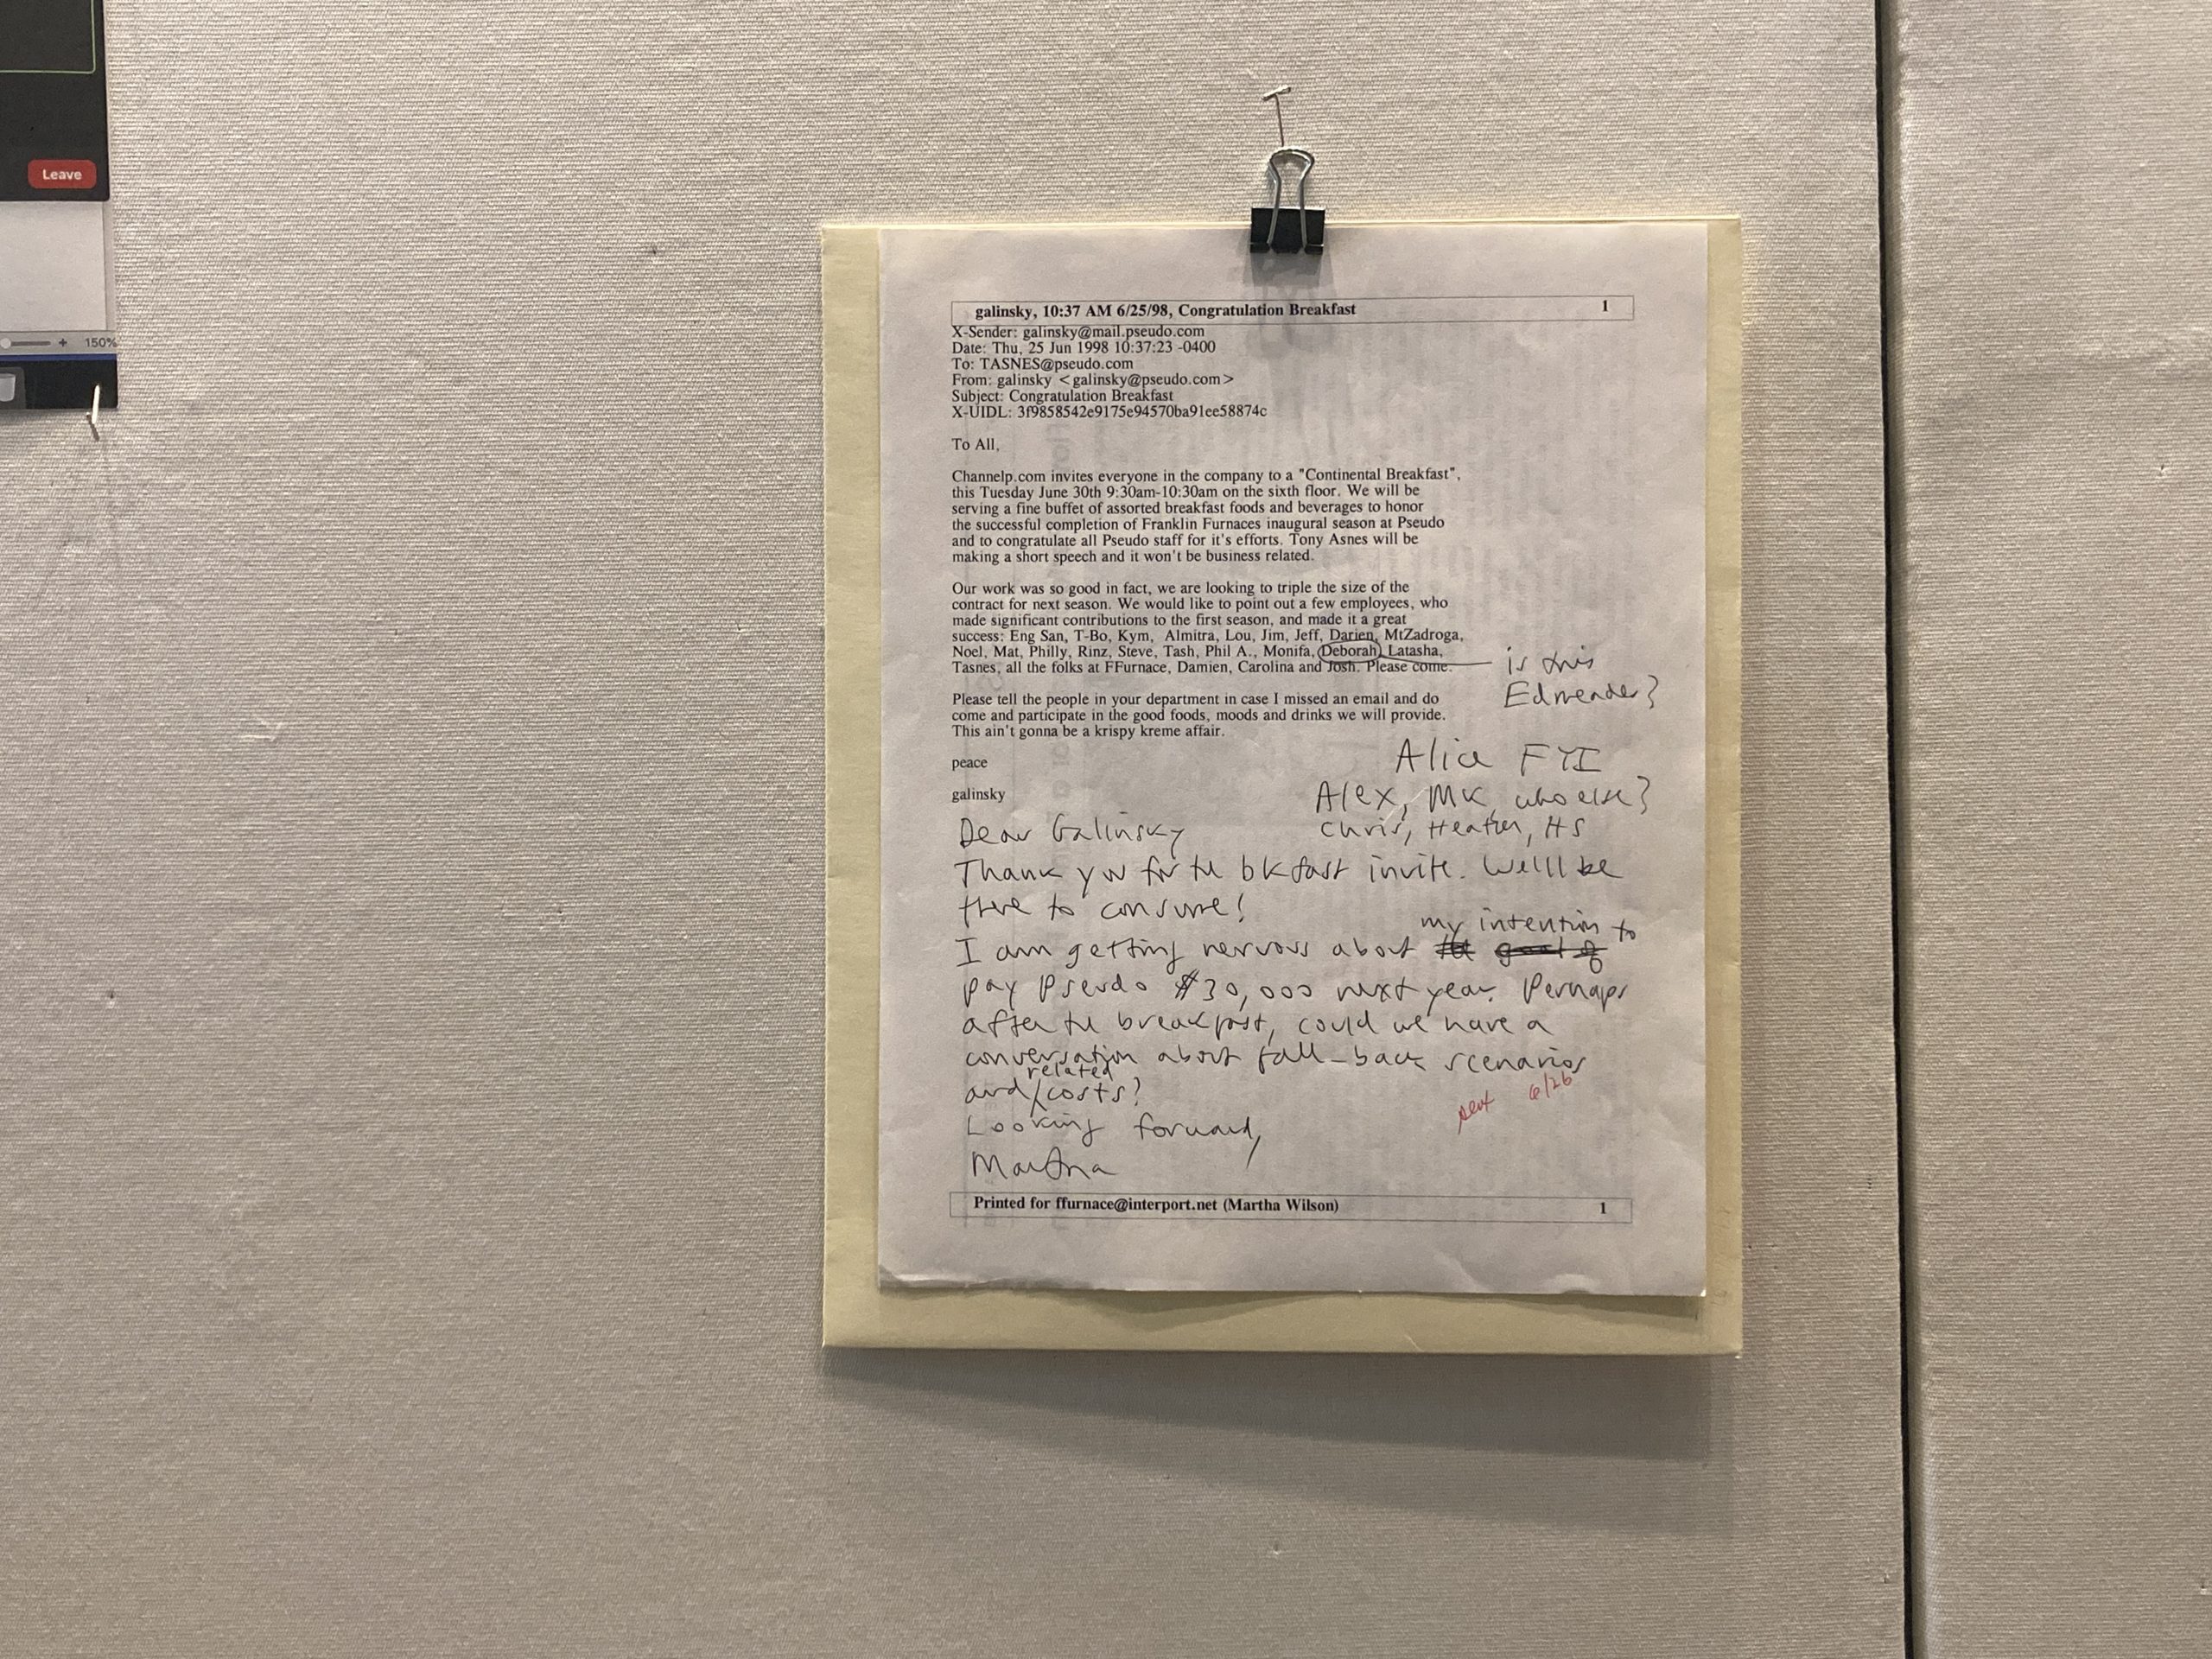 Leave
+ 150%
galinsky, 10:37 AM 6/25/98, Congratulation Breakfast 1
X-Sender: galinsky@mail.pseudo.com
Date: Thu, 25 Jun 1998 10:37:23 -0400
To: TASNES@pseudo.com
From: galinsky <galinsky@pseudo.com>
Subject: Congratulation Breakfast
X-UIDL: 3f9858542e9175e94570ba91ee58874c
To All,
Channelp.com invites everyone in the company to a "Continental Breakfast",
this Tuesday June 30th 9:30am-10:30am on the sixth floor. We will be
serving a fine buffet of assorted breakfast foods and beverages to honor
the successful completion of Franklin Furnaces inaugural season at Pseudo
and to congratulate all Pseudo staff for it's efforts. Tony Asnes will be
making a short speech and it won't be business related.
Our work was so good in fact, we are looking to triple the size of the
contract for next season. We would like to point out a few employees, who
made significant contributions to the first season, and made it a great
success: Eng San, T-Bo, Kym, Almitra, Lou, Jim, Jeff, Darien, MtZadroga,
Noel, Mat, Philly, Rinz, Steve, Tash, Phil A., Monifa, Deborah, Latasha,
Tasnes, all the folks at FFurnace, Damien, Carolina and Josh. Please come.
is this
Edmeader?
Please tell the people in your department in case I missed an email and do
come and participate in the good foods, moods and drinks we will provide.
This ain't gonna be a krispy kreme affair.
peace
galinsky
Alice FYI
Alex, MK, who else?
Chris, Heather, HS
Dear Galinsky
Thank you for the bkfast invite. We'll be
there to consume!
my intention to
I am getting nervous about
pay Pseudo $30,000 next year. Perhaps
after the breakfast, could we have a
conversation about fall-back scenarios
related
and/costs?
sent 6/26
Looking forward,
Martha
Printed for ffurnace@interport.net (Martha Wilson) 1